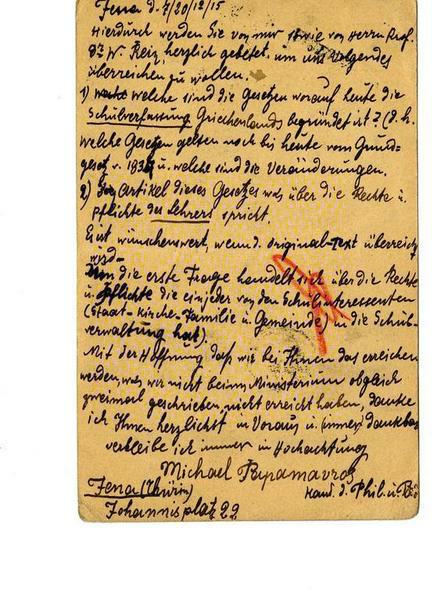 Jena d. 7/20/12/15
Hierdurch werden Sie von mir sowie von Herrn Prof.
Dr W. Rein herzlich gebetet, um uns Folgendes
überreichen zu wollen.
1) welche sind die Gesetzen worauf heute die
Schulverfassung Griechenlands begründet ist? (d. h.
welche Gesetzen gelten noch bis heute vom Grund-
gesetz v. 1834 u. welche sind die Veränderungen.
2) Artikel dieses Gesetzes was über die Rechte u.
Pflichte des Lehrers spricht
Es ist wünschenswert, wenn d. Original-Text überreicht
wird.
Um die erste Frage handelt sich über die Rechte
u. Pflichte die ein jeder von den Schulinteressenten
(Staat-Kirche-Familie u. Gemeinde) in die Schul-
verwaltung hat).
Mit der Hoffnung daß wir bei Ihnen das erreichen
werden, was wir nicht beim Ministerium obgleich
zweimal geschrieben, nicht erreicht haben, danke
ich Ihnen herzlichst in Voraus u. (immer) dankbar
verbleibe ich immer in Hochachtung
Michael
Jena (Thürin)
Kand. d. Phil. u.
Johannisplatz 22